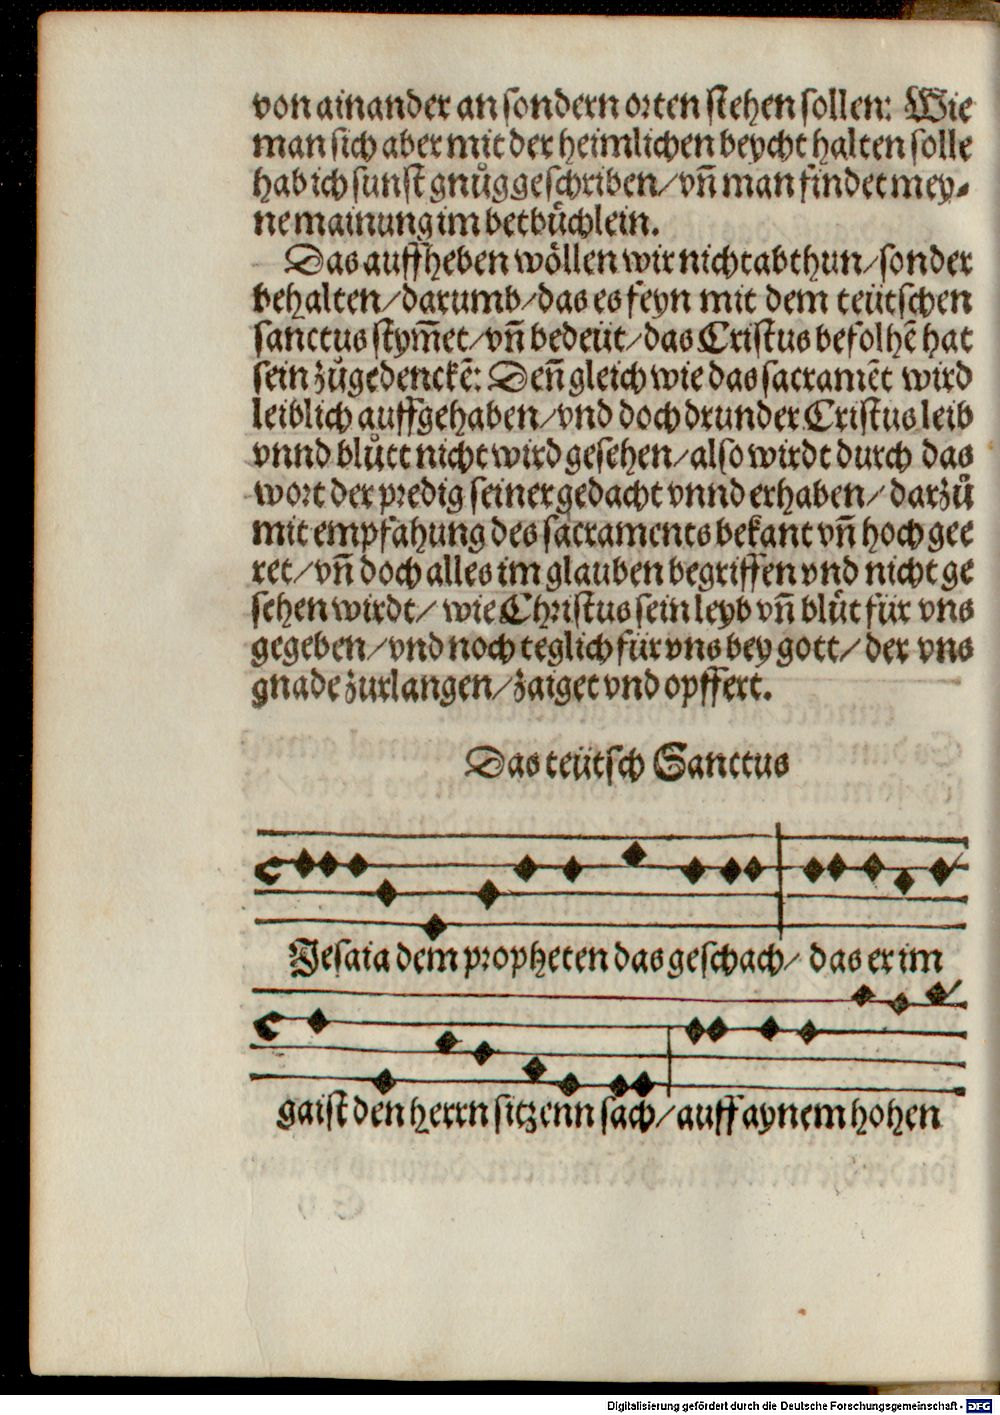 von ainander an sondern orten stehen sollen: Wie
man sich aber mit der heimlichen beycht halten solle
hab ich sunst gnůg geschriben / vñ man findet mey⸗
ne mainung im betbüchlein.
Das auffheben wöllen wir nicht abthun / sonder
behalten / darumb / das es feyn mit dem teütschen
sanctus stym̃et / vñ bedeüt / das Cristus befolhẽ hat
sein zůgedenckẽ: Deñ gleich wie das sacramẽt wird
leiblich auffgehaben / vnd doch drunder Cristus leib
vnnd blůtt nicht wird gesehen / also wirdt durch das
wort der predig seiner gedacht vnnd erhaben / darzů
mit empfahung des sacraments bekant vñ hoch gee
ret / vñ doch alles im glauben begriffen vnd nicht ge
sehen wirdt / wie Christus sein leyb vñ blůt für vns
gegeben / vnd noch teglich für vns bey gott / der vns
gnade zurlangen / zaiget vnd opffert.
Das teütsch Sanctus
Jesaia dem propheten das geschach / das er im
gaist den herrn sitzenn sach / auff aynem hohen
Digitalisierung gefördert durch die Deutsche Forschungsgemeinschaft - DFG